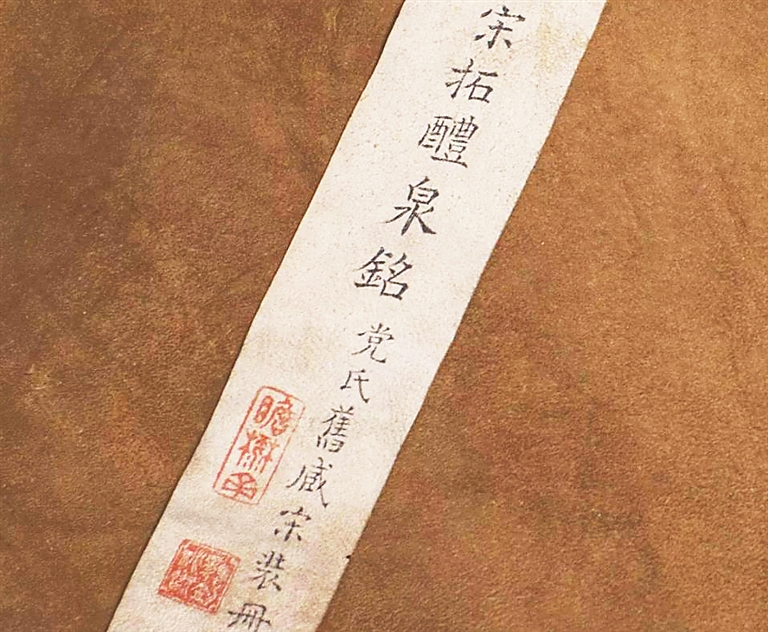 宋拓醴泉銘
党氏舊臧宋裝冊